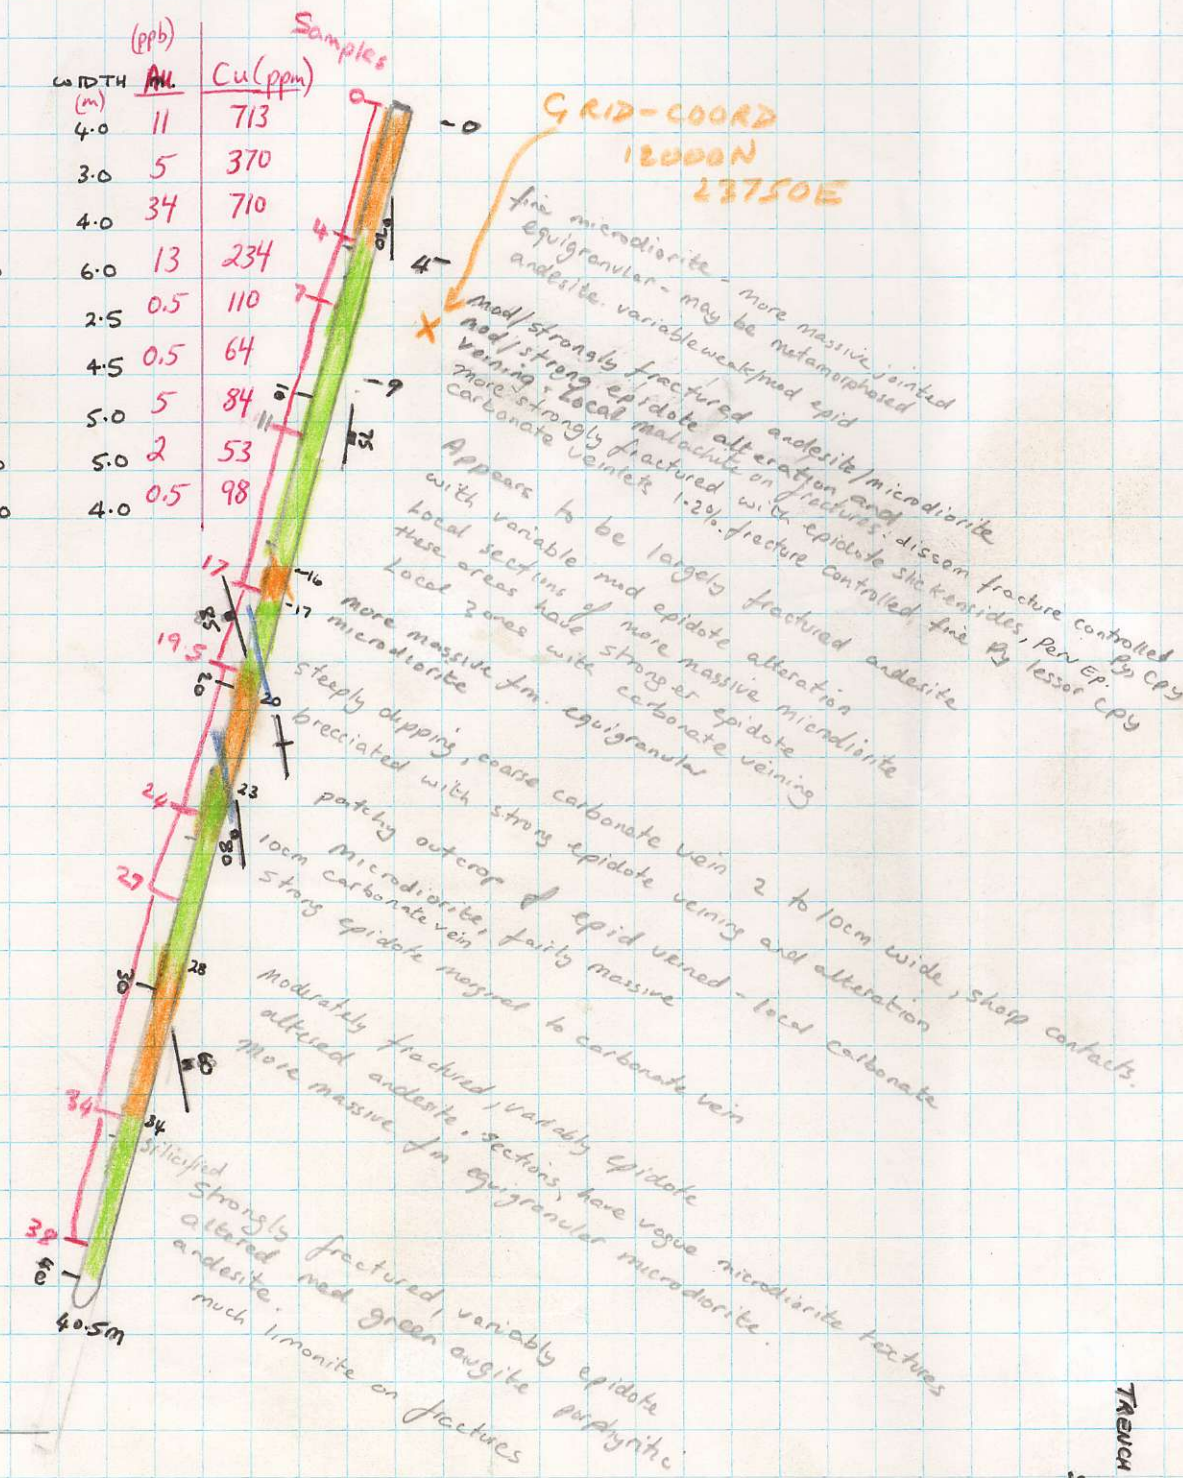 Samples
(ppb)
WIDTH Au Cu (ppm)
(m)
4.0 11 713
3.0 5 370
4.0 34 710
6.0 13 234
2.5 0.5 110
4.5 0.5 64
5.0 5 84
5.0 2 53
4.0 0.5 98
GRID-COORD
12000N
23750E
0
-0
4
70
4-
7
10
-9
11
75
17
-16
-17
85
19.5
20
20
24
23
80
27
30
28
60
34
34
38
40
40.5m
fine microdiorite - more massive jointed
equigranular - may be metamorphosed
andesite. variable weak/mod epid
Mod/strongly fractured andesite/microdiorite
mod/strong epidote alteration and
veining. Local malachite on fractures. dissem fracture controlled py, cpy
more strongly fractured with epidote slickensides, perv Ep.
carbonate veinlets 1-2% fracture controlled, fine py lessor cpy
Appears to be largely fractured andesite
with variable mod epidote alteration
Local sections of more massive microdiorite
these areas have stronger epidote
Local zones with carbonate veining
more massive fm. equigranular
microdiorite
steeply dipping, coarse carbonate vein 2 to 10cm wide, sharp contacts.
brecciated with strong epidote veining and alteration
patchy outcrop of epid veined - local carbonate
Microdiorite, fairly massive
10cm carbonate vein
Strong epidote marginal to carbonate vein
Moderately fractured, variably epidote
altered andesite, sections, have vague microdiorite textures
More massive fm equigranular microdiorite.
silicified
Strongly fractured, variably epidote
altered med green augite porphyritic
andesite.
much limonite on fractures
TRENCH